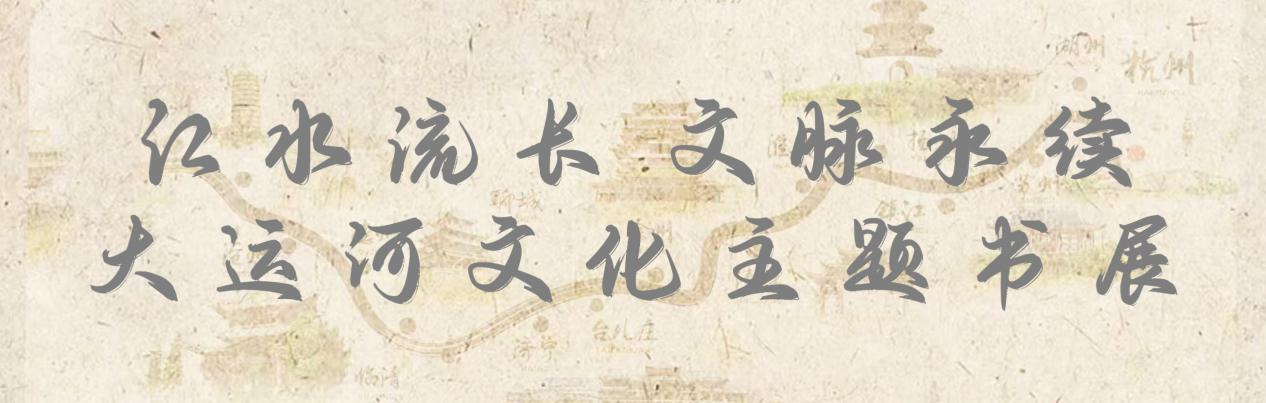 江水流长文脉永续
大运河文化主题书展
湖州
杭州
聊城
常州
镇江
台儿庄
济宁
临清